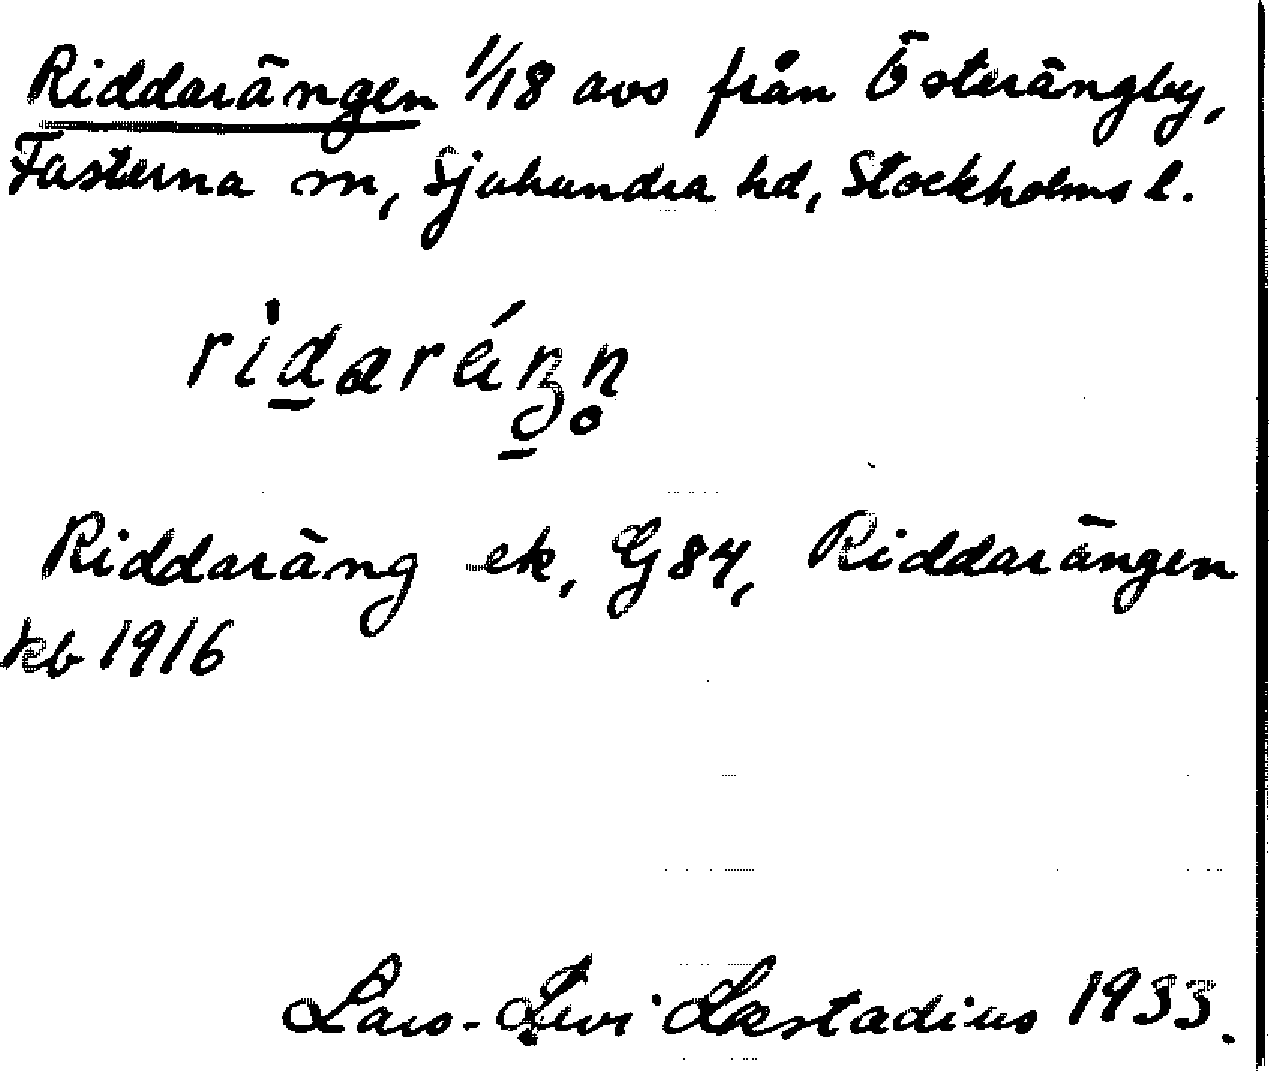 Riddarängen 1/18 avs från Österängby,
Fasterna sn, Sjuhundra hd, Stockholms l.
Riddaräng ek, G 84, Riddarängen
kb 1916
Lars-Levi Læstadius 1933.